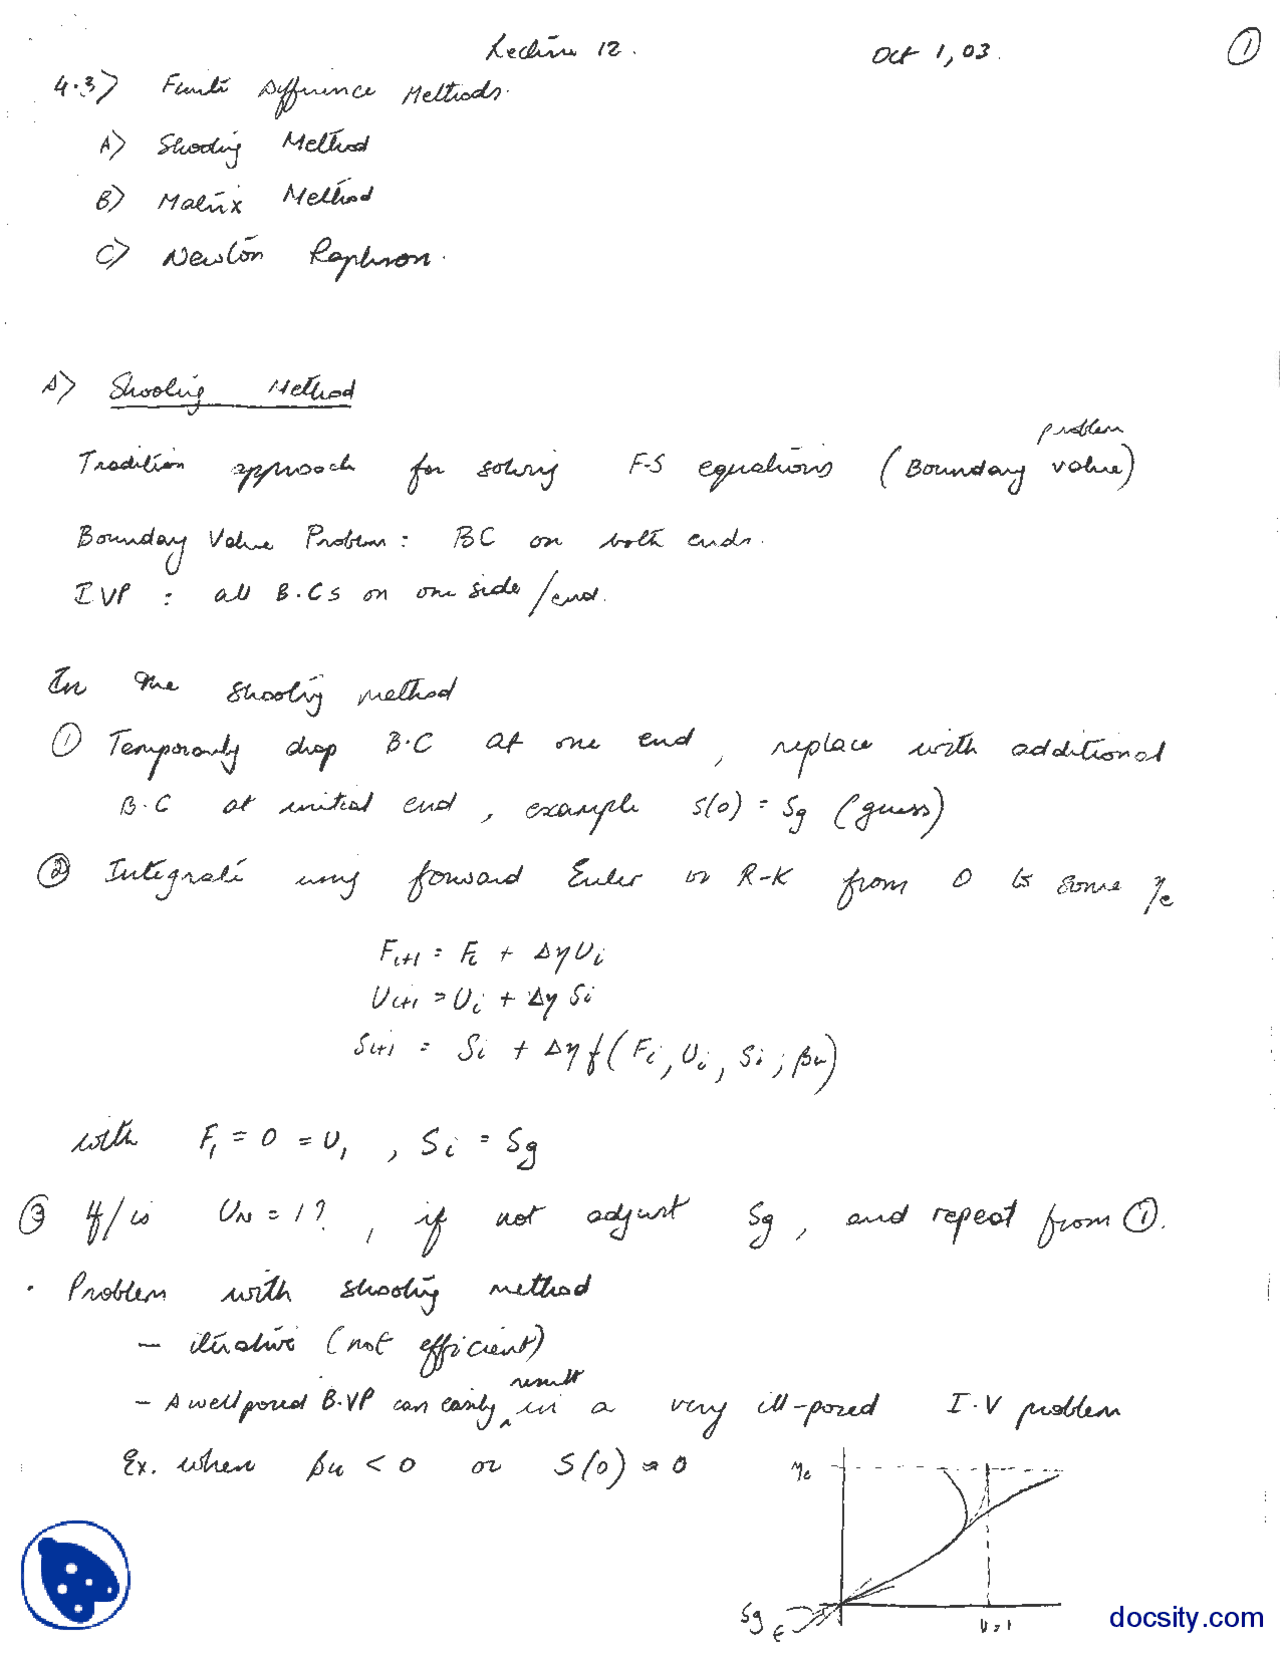 Lecture 12. Oct 1, 03. ①
4.3) Finite Difference Methods.
A) Shooting Method
B) Matrix Method
C) Newton Raphson.
A) Shooting Method
problem
Tradition approach for solving F-S equations (Boundary value)
Boundary Value Problem: BC on both ends.
IVP : all B.Cs on one side/end.
In the shooting method
① Temporarily drop B.C at one end, replace with additional
B.C at initial end, example S(0) = Sg (guess)
② Integrate using forward Euler or R-K from 0 to some ηe
Fi+1 = Fi + Δη Ui
Ui+1 = Ui + Δη Si
Si+1 = Si + Δη f(Fi, Ui, Si; βu)
with F1 = 0 = U1, Si = Sg
③ If/is UN = 1?, if not adjust Sg, and repeat from ①.
· Problem with shooting method
- iterative (not efficient)
result
- A well posed B.VP can easily ^ in a very ill-posed I.V problem
Ex. when βu < 0 or S(0) ≈ 0
ηe
Sg
U=1
docsity.com